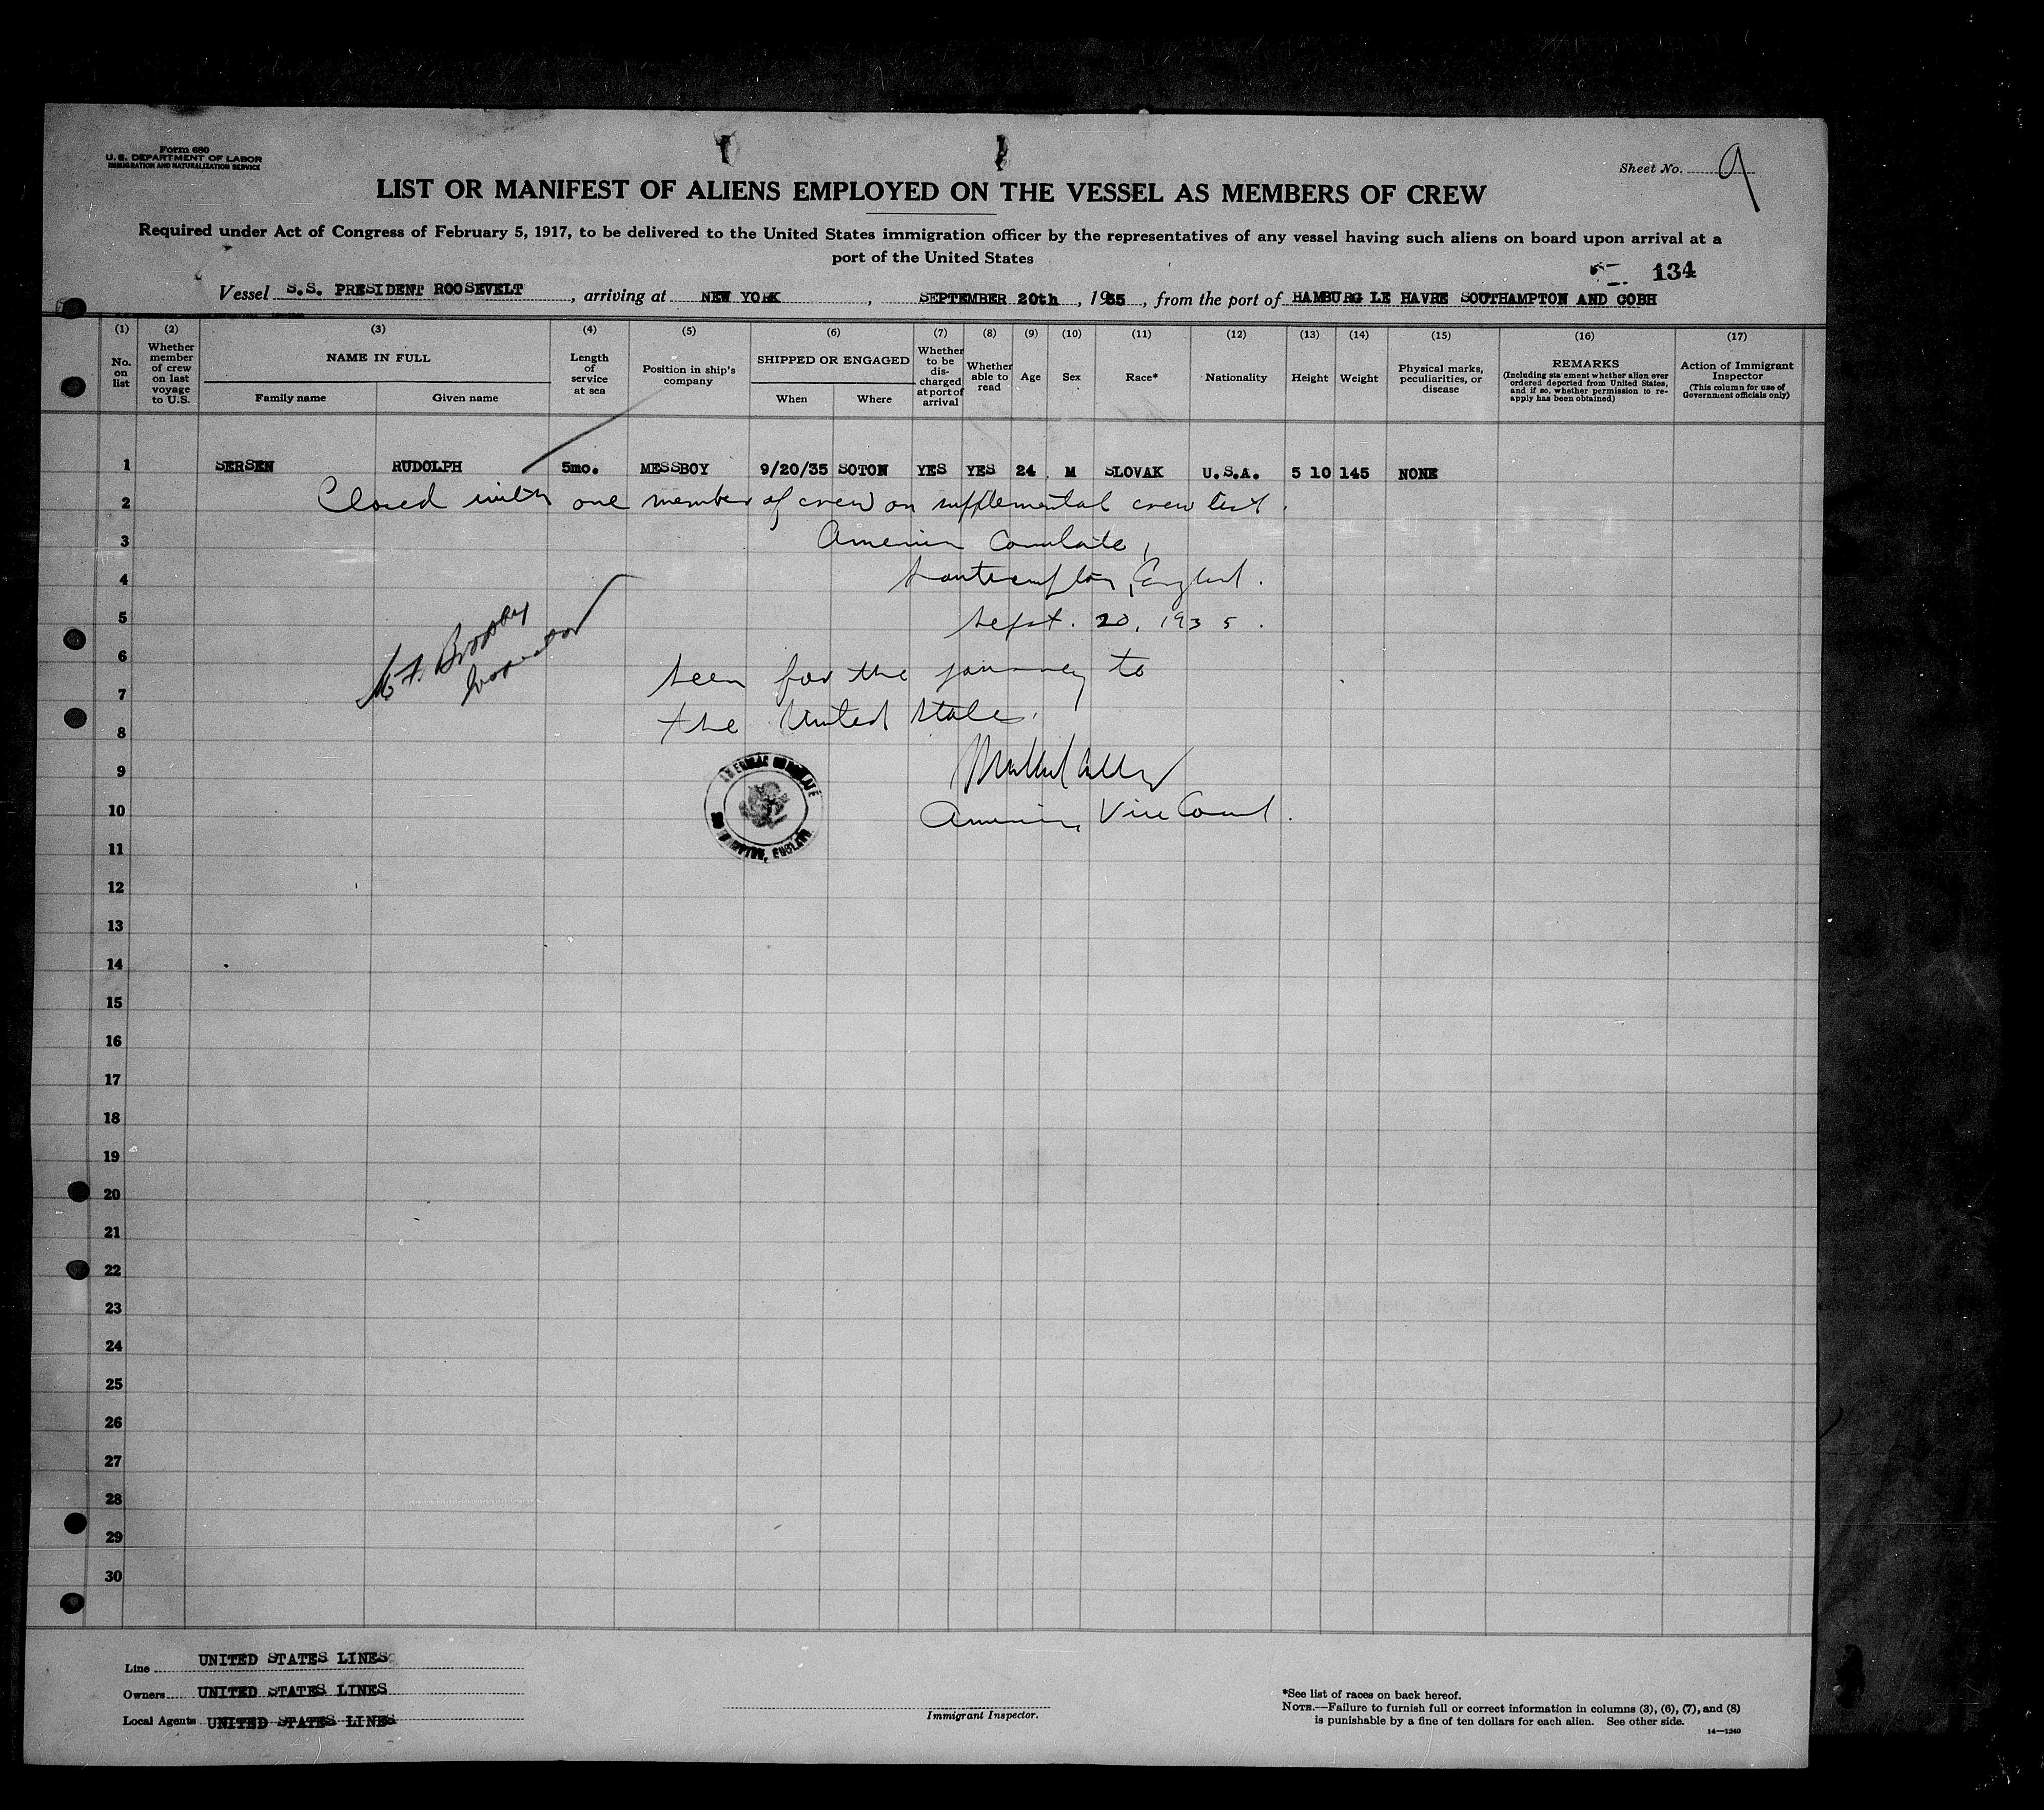 Form 680
U. S. DEPARTMENT OF LABOR
IMMIGRATION AND NATURALIZATION SERVICE
Sheet No. 9
LIST OR MANIFEST OF ALIENS EMPLOYED ON THE VESSEL AS MEMBERS OF CREW
Required under Act of Congress of February 5, 1917, to be delivered to the United States immigration officer by the representatives of any vessel having such aliens on board upon arrival at a
port of the United States
134
Vessel S.S. PRESIDENT ROOSEVELT, arriving at NEW YORK, SEPTEMBER 20th, 1935, from the port of HAMBURG LE HAVRE SOUTHAMPTON AND COBH
(1) (2) (3) (4) (5) (6) (7) (8) (9) (10) (11) (12) (13) (14) (15) (16) (17)
No. on list
Whether member of crew on last voyage to U.S.
NAME IN FULL
Family name
Given name
Length of service at sea
Position in ship's company
SHIPPED OR ENGAGED
When
Where
Whether to be discharged at port of arrival
Whether able to read
Age
Sex
Race*
Nationality
Height
Weight
Physical marks, peculiarities, or disease
REMARKS
(Including statement whether alien ever ordered deported from United States, and if so, whether permission to re-apply has been obtained)
Action of Immigrant Inspector
(This column for use of Government officials only)
1 SERSEN RUDOLPH 5mo. MESSBOY 9/20/35 SOTON YES YES 24 M SLOVAK U.S.A. 5 10 145 NONE
2 Closed with one member of crew on supplemental crew list.
3 American Consulate,
4 Southampton, England.
5 Sept. 20, 1935.
6 Seen for the journey to
7 the United States.
8
9
10 American Vice Consul.
AMERICAN CONSULATE
SOUTHAMPTON, ENGLAND
11
12
13
14
15
16
17
18
19
20
21
22
23
24
25
26
27
28
29
30
Line UNITED STATES LINES
Owners UNITED STATES LINES
Local Agents UNITED STATES LINES
Immigrant Inspector.
*See list of races on back hereof.
NOTE.—Failure to furnish full or correct information in columns (3), (6), (7), and (8)
is punishable by a fine of ten dollars for each alien. See other side.
14—1240